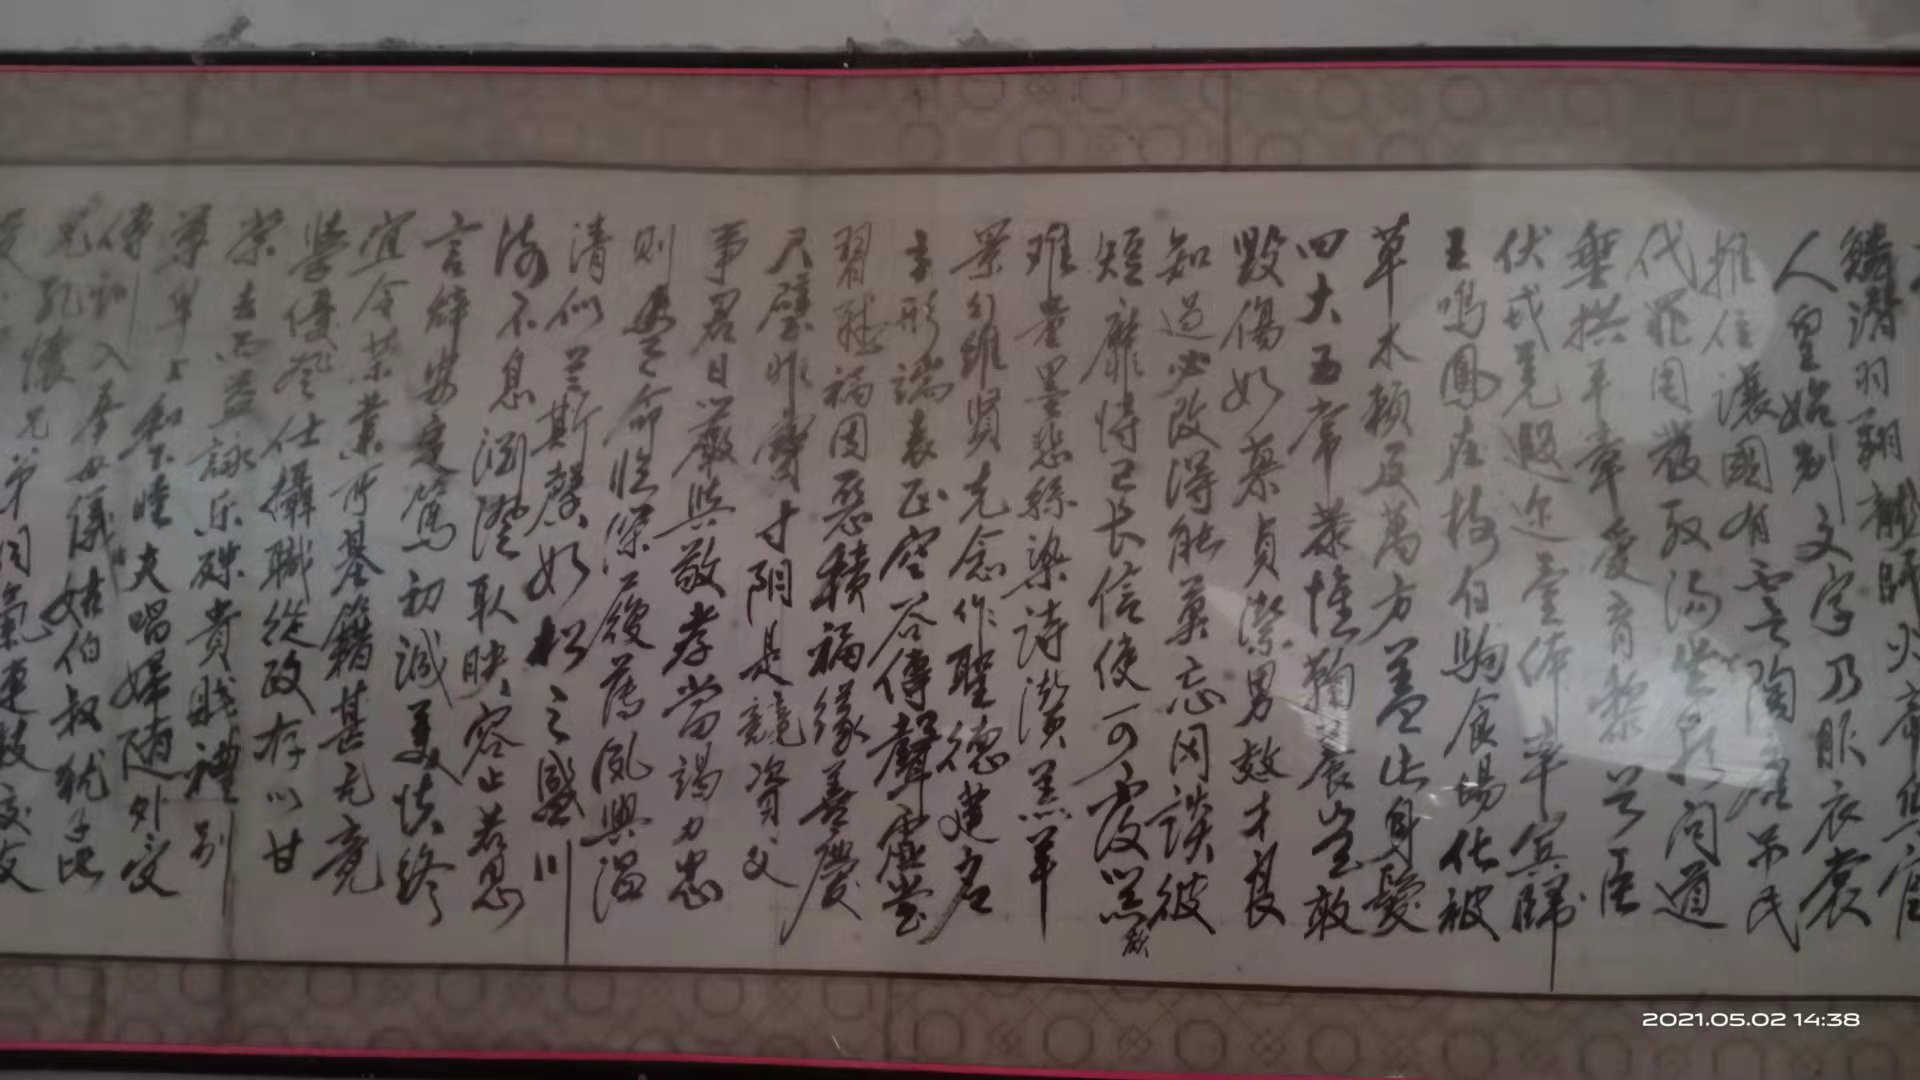 鱗潛羽翔龍師火帝鳥官
人皇始制文字乃服衣裳
推位讓國有虞陶唐吊民
伐罪周發殷湯坐朝問道
垂拱平章愛育黎首臣
伏戎羌遐迩壹体率賓歸
王鳴鳳在樹白駒食場化被
草木賴及萬方盖此身髮
四大五常恭惟鞠養豈敢
毀傷女慕貞潔男效才良
知過必改得能莫忘罔談彼
短靡恃己长信使可覆器欲
难量墨悲絲染詩讚羔羊
景行維賢克念作聖德建名
立形端表正空谷傳聲虛堂
習聽禍因惡積福緣善慶
尺璧非寶寸阴是競資父
事君曰嚴與敬孝當竭力忠
則盡命临深履薄夙興温
清似兰斯馨如松之盛川
流不息渊澄取映容止若思
言辞安定篤初誠美慎終
宜令荣業所基籍甚无竟
學優登仕攝職從政存以甘
棠去而益詠乐殊貴賤禮别
尊卑上和下睦夫唱婦随外受
傅訓入奉母儀姑伯叔犹子比
兒孔懷兄弟同氣連枝交友
2021.05.02 14:38